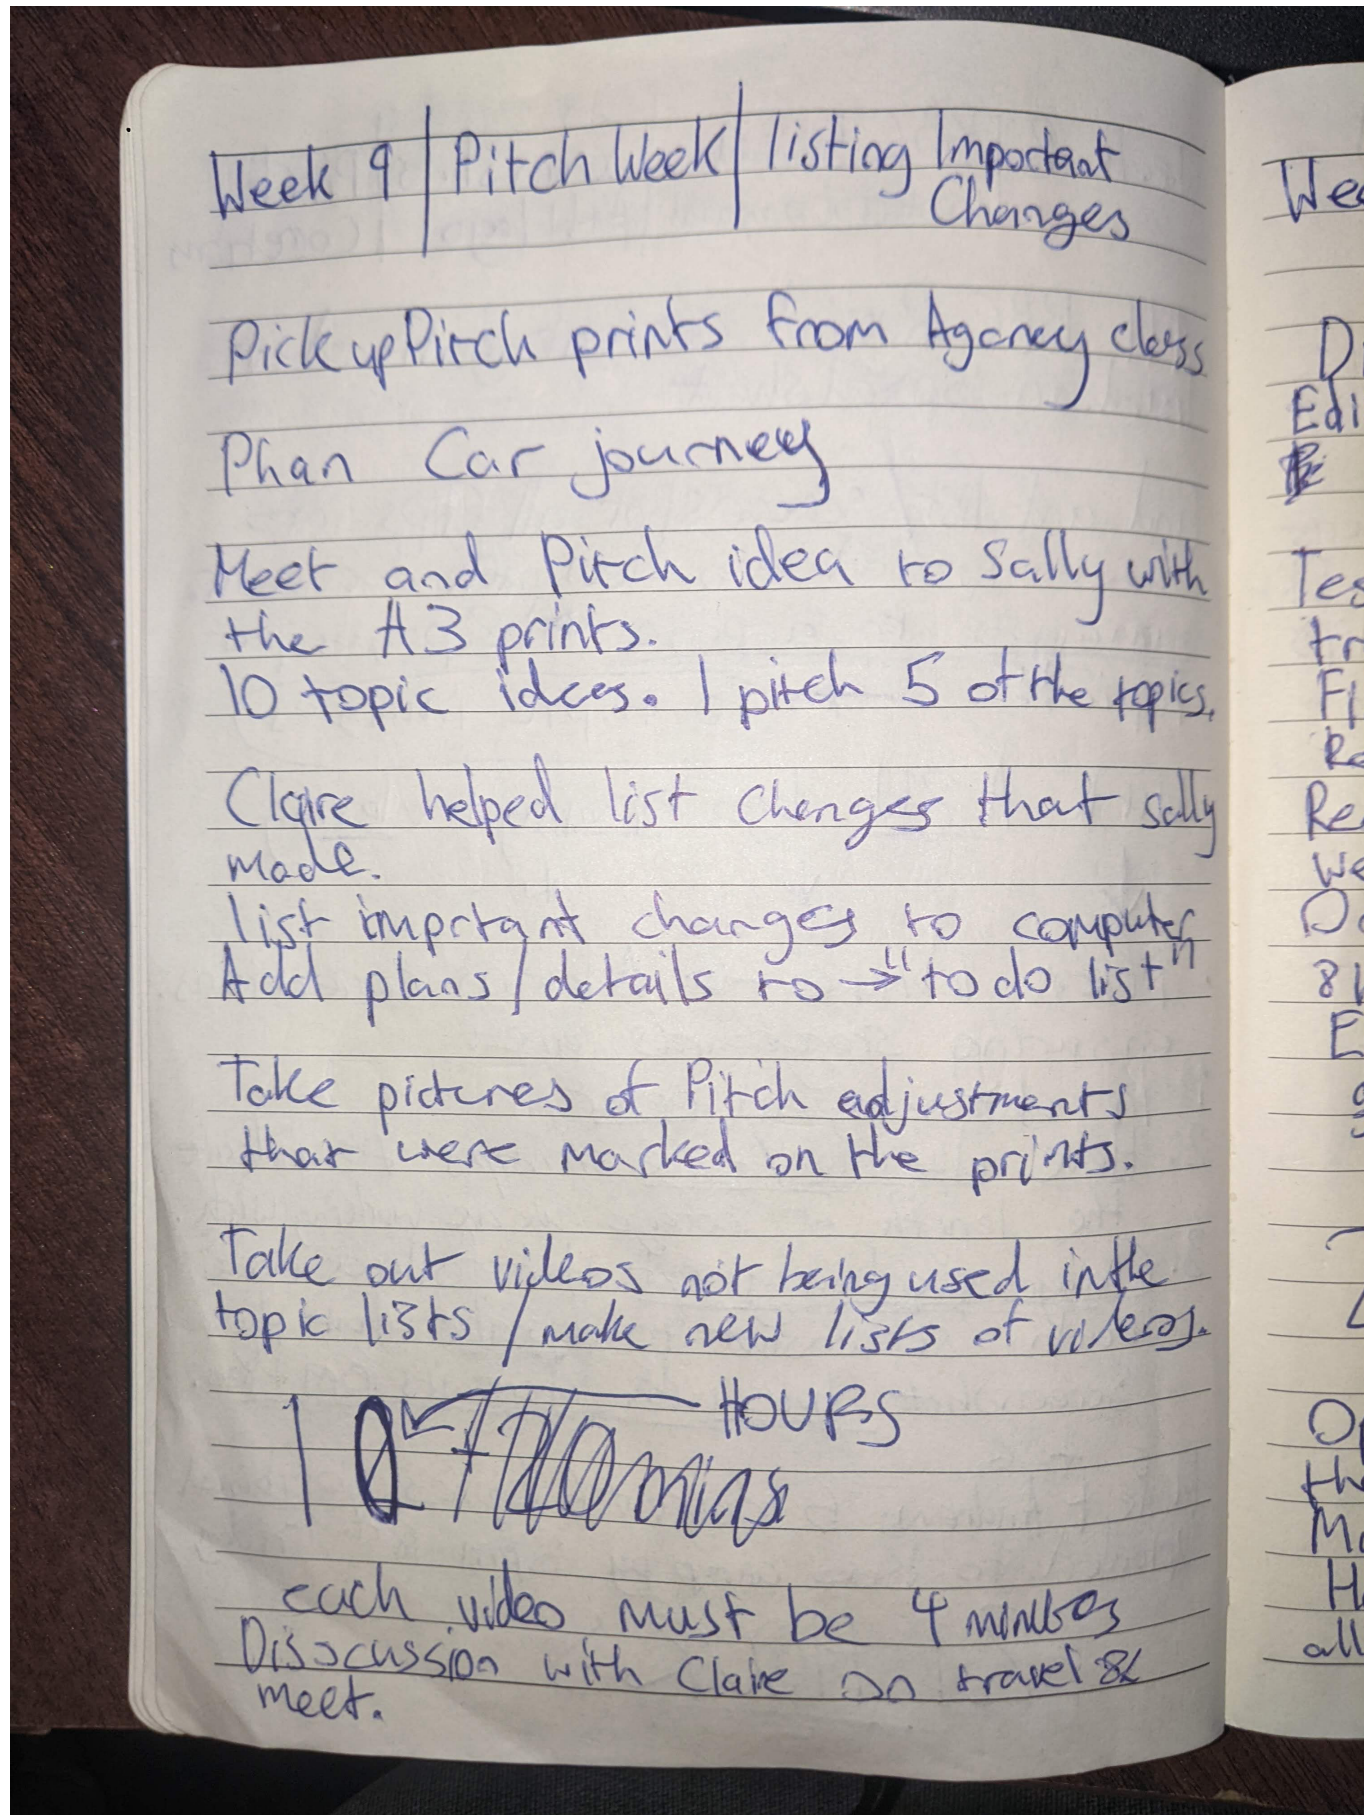 Week 9 | Pitch Week | listing Important
Changes
Pick up Pitch prints from Agancy class
Phan Car journey
Meet and Pitch idea to Sally with
the A3 prints.
10 topic ideas. I pitch 5 of the topics.
Claire helped list changes that sally
made.
list imprtant changes to computer
Add plans/details to → "to do list"
Take pictures of Pitch adjustments
that were marked on the prints.
Take out videos not being used in the
topic lists / make new lists of videos.
HOURS
10
each video must be 4 minutes
Disscussion with Claire on travel &
meet.
Wee
D
Edi
Tes
tr
Fi
Re
Re
We
8
E
Op
th
Ma
H
all